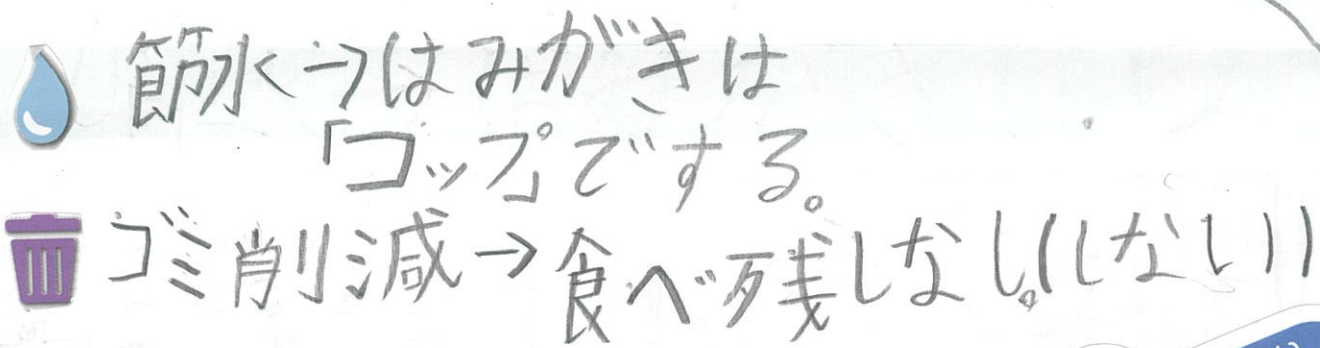 節水→はみがきは
「コップ」でする。
ゴミ削減→食べ残しなし。(しない)